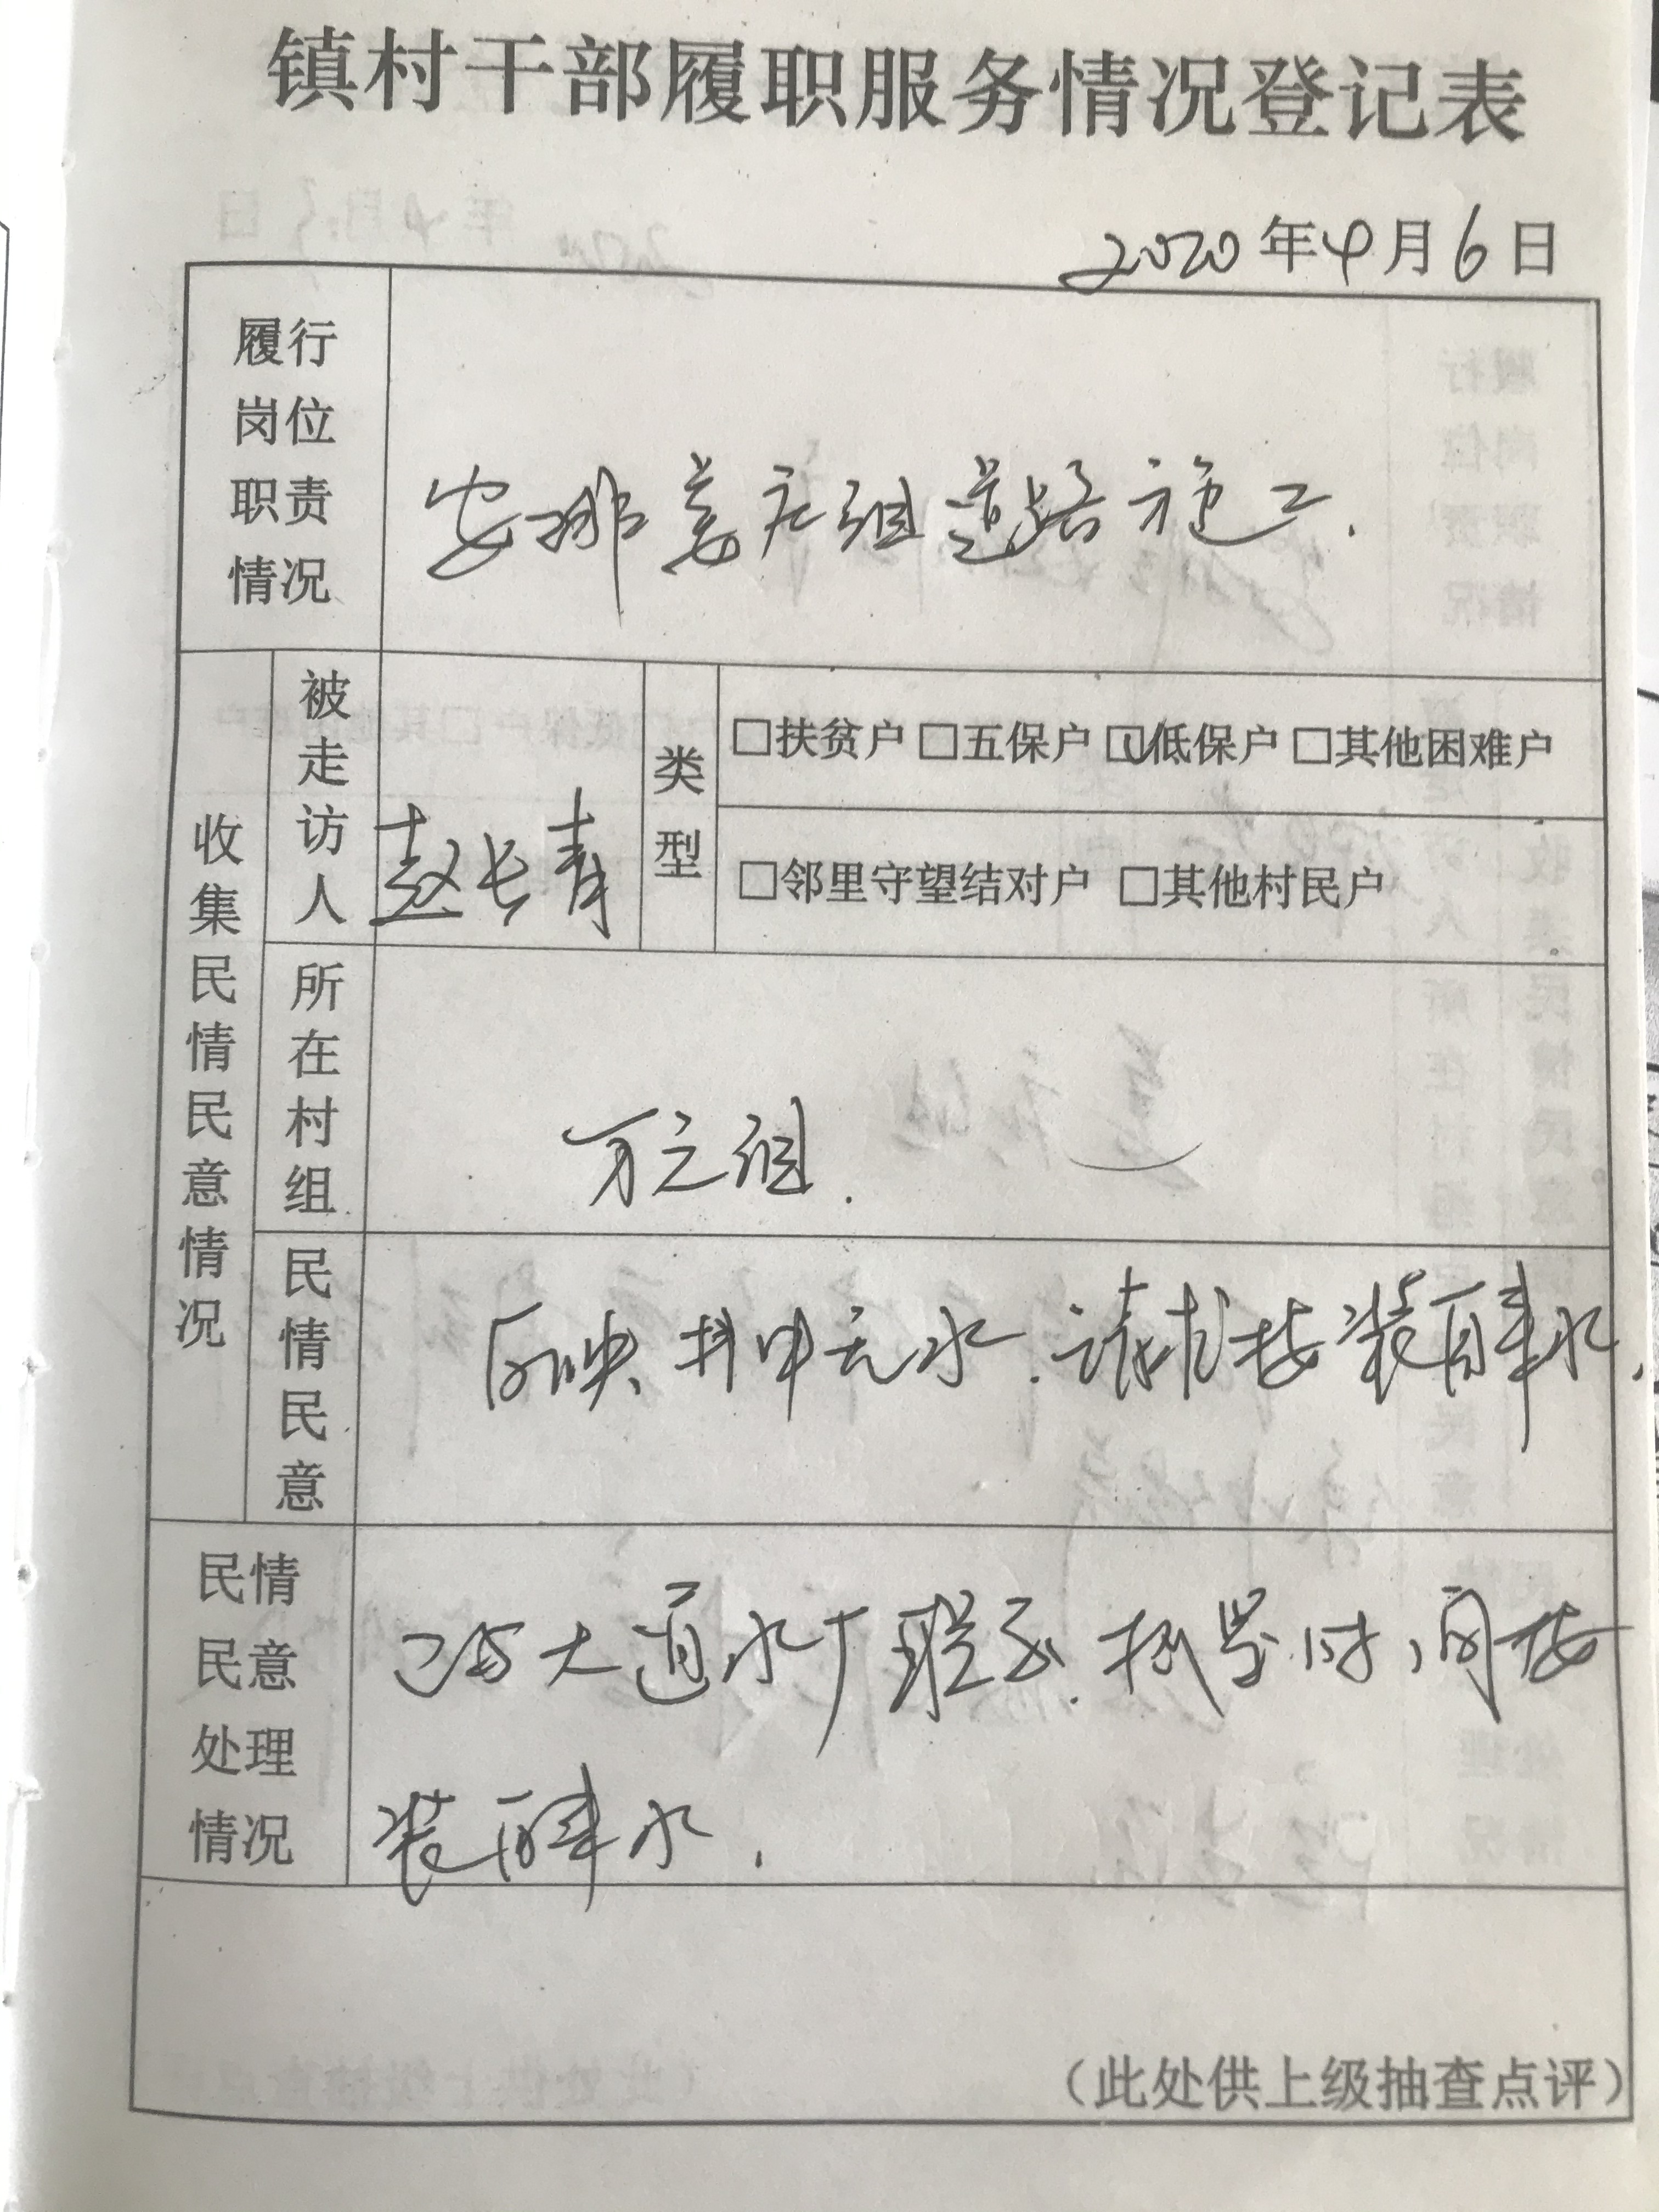 镇村干部履职服务情况登记表
2020年4月6日
履行
岗位
职责
情况
安排姜庄组道路施工.
收集民情民意情况
被走访人
赵长青
类型
□扶贫户 □五保户 ☑低保户 □其他困难户
□邻里守望结对户 □其他村民户
所在村组
方立组.
民情民意
反映井中无水.请求接装自来水.
民情
民意
处理
情况
已与大通水厂联系.抓紧时间接
装自来水.
（此处供上级抽查点评）